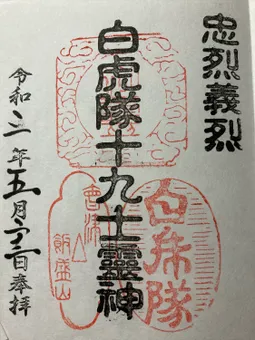 忠烈義烈
白虎隊十九士霊神
令和三年五月三日奉拝
白虎隊
會津
飯盛山